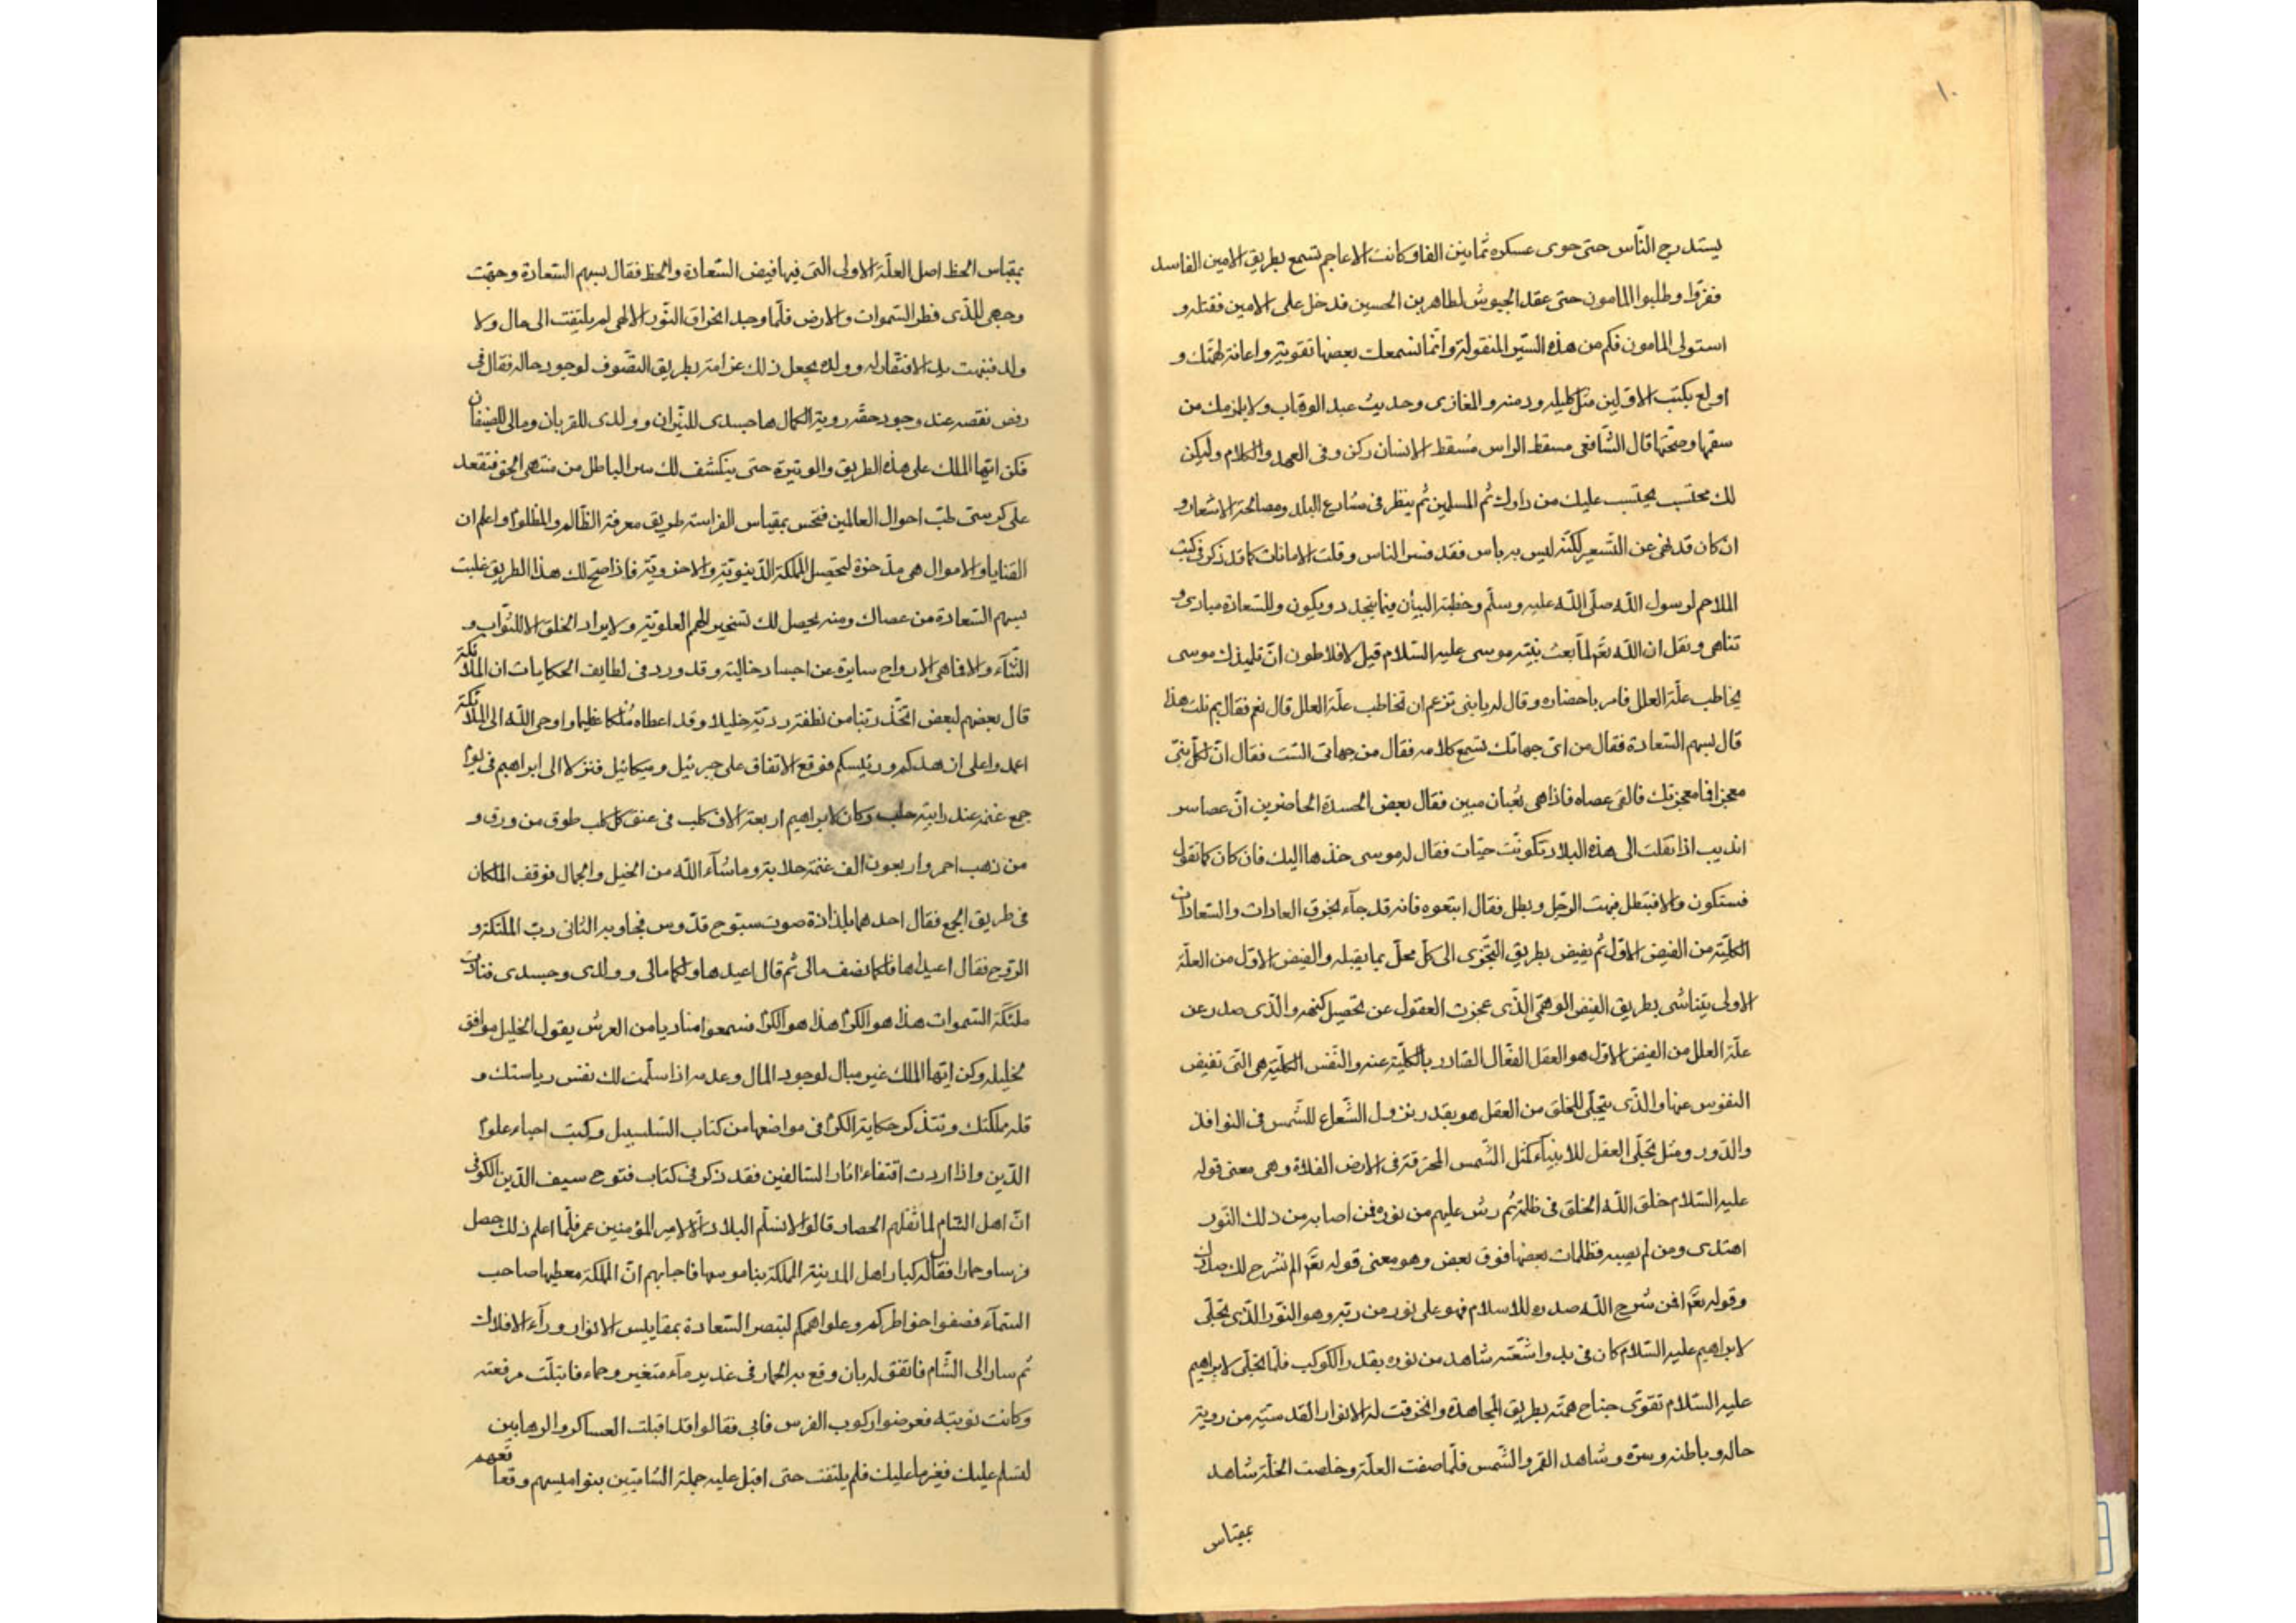 ١٠
يستدرج النّاس حتى حوى عسكره ثمانين الفا وكانت الاعاجم تسمع بطريق الامين الفاسد
ففرّوا وطلبوا المامون حتى عقد الجيوش لطاهر بن الحسين فدخل على الامين فقتله و
استولى المامون فكم من هذه السّير المنقولة وانّما نسمعك بعضها تقوية واعانة لهمّتك و
اولع بكتب الاوّلين مثل كليله ودمنه والمغازى وحديث عبد الوهّاب ولا يلزمك من
سقمها وصحّتها قال الشّافعى مسقط الراس مسقط الانسان ركن وفى العهد والكلام وليكن
لك محتسب يحتسب عليك من دارك ثم المسلمين ثم ينظر فى شارع البلد ومصالحة الاشعار و
ان كان قد نهى عن التّسعير لكنّه ليس به باس فقد فسر الناس وقلت الامانات كما قد ذكر فى كتب
الملاحم لرسول اللّه صلّى اللّه عليه وسلّم وخطبة البيان فيما يتجدد ويكون وللسّعادة مبادى و
تناهى ونقل ان اللّه تعّ لمّا بعث نبيّه موسى عليه السّلام قيل لافلاطون انّ تلميذك موسى
يخاطب علّة العلل فامر باحضاره وقال له يا بنى تزعم ان تخاطب علّة العلل قال نعم فقال بم نلت هذا
قال بسهم السّعادة فقال من اىّ جهاتك تسمع كلامه فقال من جهاتى السّت فقال انّ لكلّ نبىّ
معجزا فما معجزتك فالقى عصاه فاذا هى ثعبان مبين فقال بعض الحسدة الحاضرين انّ عصا سر
انديب اذا نقلت الى هذه البلاد تكونت حيّات فقال له موسى خذها اليك فان كان كما تقول
فستكون والا فتبطل فبهت الرّجل وبطل فقال ابتعوه فانه قد جآء بخرق العادات والسّعادات
الكليّة من الفيض الاوّل ثم يفيض بطريق التجّزى الى كلّ محلّ بما يقبله والفيض الاوّل من العلّة
الاولى يتناشى بطريق الفيض الوهمّى الذّى عجزت العقول عن تحصيل كنهه والذّى صدر عن
علّة العلل من الفيض الاوّل هو العقل الفعّال الصّادر بالكليّة عنه والنّفس الكليّة هى التّى تفيض
النفوس عنها والذّى يتجلّى للخلق من العقل هو بقدر نزول الشّعاع للشّمس فى النوافذ
والدّور ومثل تجلّى العقل للانبيآء كمثل الشّمس المحرقة فى الارض الفلاة وهى معنى قوله
عليه السّلام خلق اللّه الخلق فى ظلمة ثم رش عليهم من نوره فمن اصابه من ذلك النّور
اهتدى ومن لم يصبه فظلمات بعضها فوق بعض وهو معنى قوله تعّ الم نشرح لك صدرك
وقوله تعّ افمن شرح اللّه صدره للاسلام فهو على نور من ربّه وهو النّور الذّى تجلّى
لابراهيم عليه السّلام كان فى بدو اشعّته شاهد من نوره بقدر الكوكب فلمّا تجلّى لابراهيم
عليه السّلام تقوّى جناح همّته بطريق المجاهدة وانخرقت له الانوار القدسيّه من روية
حاله وباطنه وسرّه وشاهد القمر والشّمس فلمّا صفت العلّة وخلصت الخلّة شاهد
بمقياس
بمقياس الحظ اصل العلّة الاولى التى فيها فيض السّعادة والحظ فقال بسهم السّعادة وجهّت
وجهى للذّى فطر السّموات والارض فلّما وجد انخراق النّور الالهى لم يلتفت الى مال ولا
ولد فبهت بك الافتقار له وولده يجعل ذلك غرامة بطريق التصّوف لوجود حاله فقال فى
رفض نفسه عند وجود حقّه روية الكمال ها جسدى للنّيران وولدى للقربان ومالى للضيفان
فكن ايّها الملك على هذه الطريق والوتيرة حتى ينكشف لك سر الباطل من منتهى الحق فتقعد
على كرسىّ طبّ احوال العالمين فتحس بمقياس الفراسة طريق معرفة الظّالم والمظلوم واعلم ان
القنايا والاموال هى مدّخرة لتحصيل المملكة الدّنيويّة والاخرويّة فاذا صّح لك هذا الطريق غلبت
بسهم السّعادة من عصاك ومنه يحصل لك تسخير الهمم العلويّة ولا يراد الخلق الا للثّواب و
الثّنآء والا فما هى الارواح سايرة عن اجساد خالية وقد ورد فى لطايف الحكايات ان الملائكة
قال بعضهم لبعض اتّخذ ربّنا من نطفة رديّة خليلا وقد اعطاه ملكا عظيما واوحى اللّه الى الملائكة
اعمدوا على ازهدكم ورئيسكم فوقع الاتفاق على جبرئيل وميكائيل فنزلا الى ابراهيم فى يوم
جمع غنمه عند رابية حلب وكان لابراهيم اربعة الاف كلب فى عنق كلّ كلب طوق من ورق و
من ذهب احمر واربعون الف غنمة حلابة وما شآء اللّه من الخيل والجمال فوقف الملكان
فى طريق الجمع فقال احدهما بلذاذة صوت سبّوح قدّوس فجاوبه الثانى ربّ الملئكة و
الرّوح فقال اعيداها فلكما نصف مالى ثم قال اعيدها ولكما مالى وولدى وجسدى فنادت
ملئكة السّموات هذا هو الكرم هذا هو الكرم فسمعوا مناديا من العرش يقول الخليل موافق
لخليله وكن ايّها الملك غير مبال لوجود المال وعدمه اذا سلّمت لك نفس رياستك و
قلّة مملكتك ونتذكر حكاية الكرم فى مواضعها من كتاب السّلسبيل وكتب احياء علوم
الدّين واذا اردت اقتفاء اثار السّالفين فقد ذكر فى كتاب فتوح سيف الدّين الكوفى
انّ اهل الشّام لما ثقلهم الحصار قالوا لا نسلّم البلاد الّا لامير المؤمنين عمر فلّما اعلم ذلك حصل
فرسا وحمارا فقال له كبار اهل المدينة المملكة بناموسها فاجابهم انّ المملكة معطيها صاحب
السّمآء فصفوا خواطركم وعلوا هممكم لتبصر السّعادة بمقاييس الانوار ورآء الافلاك
ثم سار الى الشّام فاتفق له بان وقع به الحمار فى غدير مآء متغير وحماء فابتلّت مرقعته
وكانت نوبته فعرضوا ركوب الفرس فابى فقالوا قد اقبلت العساكر والرهابين
لتسلم عليك فغير ما عليك فلم يلتفت حتى اقبل عليه جملة الشّاميّين بنواميسهم وقعاقعهم